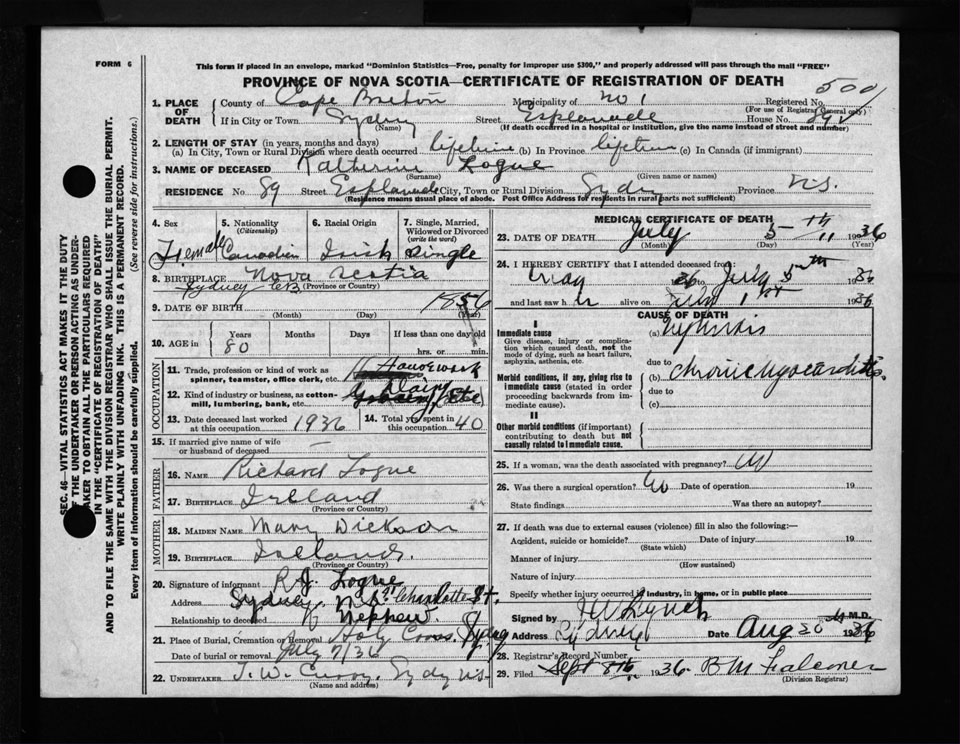 FORM 6
This form if placed in an envelope, marked "Dominion Statistics—Free, penalty for improper use $300," and properly addressed will pass through the mail "FREE"
PROVINCE OF NOVA SCOTIA—CERTIFICATE OF REGISTRATION OF DEATH
1. PLACE OF DEATH
County of Cape Breton Municipality of No 1 Registered No. 5001
(For use of Registrar General only)
If in City or Town Sydney Street Esplanade House No. 89
(Name) (If death occurred in a hospital or institution, give the name instead of street and number)
2. LENGTH OF STAY (in years, months and days)
(a) In City, Town or Rural Division where death occurred lifetime (b) In Province lifetime (c) In Canada (if immigrant)
3. NAME OF DECEASED Katherine Logue
(Surname) (Given name or names)
RESIDENCE No 89 Street Esplanade City, Town or Rural Division Sydney Province N.S.
(Residence means usual place of abode. Post Office Address for residents in rural parts not sufficient)
4. Sex Female
5. Nationality (Citizenship) Canadian
6. Racial Origin Irish
7. Single, Married, Widowed or Divorced (write the word) Single
8. BIRTHPLACE Nova Scotia
Sydney CB (Province or Country)
9. DATE OF BIRTH 1856
(Month) (Day) (Year)
10. AGE in Years 80 Months Days If less than one day old
hrs. or min.
OCCUPATION
11. Trade, profession or kind of work as spinner, teamster, office clerk, etc. Housework
12. Kind of industry or business, as cotton-mill, lumbering, bank, etc.
13. Date deceased last worked at this occupation 1936
14. Total years spent in this occupation 40
15. If married give name of wife or husband of deceased —
FATHER
16. NAME Richard Logue
17. BIRTHPLACE Ireland
(Province or Country)
MOTHER
18. MAIDEN NAME Mary Dickson
19. BIRTHPLACE Ireland.
(Province or Country)
20. Signature of informant R J. Logue
Address Sydney, N.S. Charlotte St.
Relationship to deceased Nephew
21. Place of Burial, Cremation or Removal Holy Cross, Sydney
Date of burial or removal July 7/36
22. UNDERTAKER T. W. Curry, Sydney NS.
(Name and address)
MEDICAL CERTIFICATE OF DEATH
23. DATE OF DEATH July 5th 1936
(Month) (Day) (Year)
24. I HEREBY CERTIFY that I attended deceased from:
May 36 to July 5th 1936
and last saw her alive on 1st 1936
CAUSE OF DEATH
I
Immediate cause
Give disease, injury or complication which caused death, not the mode of dying, such as heart failure, asphyxia, asthenia, etc.
(a) Nephritis
due to
Morbid conditions, if any, giving rise to immediate cause (stated in order proceeding backwards from immediate cause).
(b) chronic myocarditis
due to
(c)
II
Other morbid conditions (if important) contributing to death but not causally related to immediate cause.
25. If a woman, was the death associated with pregnancy? No
26. Was there a surgical operation? No Date of operation 19
State findings Was there an autopsy?
27. If death was due to external causes (violence) fill in also the following:—
Accident, suicide or homicide? Date of injury 19
(State which)
Manner of injury
(How sustained)
Nature of injury
Specify whether injury occurred in industry, in home, or in public place
Signed by Lynch M.D.
Address Sydney Date Aug 20 1936
28. Registrar's Record Number
29. Filed Sept 8th 1936 B M Falconer
(Division Registrar)
SEC. 46—VITAL STATISTICS ACT MAKES IT THE DUTY
OF THE UNDERTAKER OR PERSON ACTING AS UNDERTAKER TO OBTAIN ALL THE PARTICULARS REQUIRED
IN THE "CERTIFICATE OF REGISTRATION OF DEATH"
AND TO FILE THE SAME WITH THE DIVISION REGISTRAR WHO SHALL ISSUE THE BURIAL PERMIT.
WRITE PLAINLY WITH UNFADING INK. THIS IS A PERMANENT RECORD.
Every item of information should be carefully supplied. (See reverse side for instructions.)